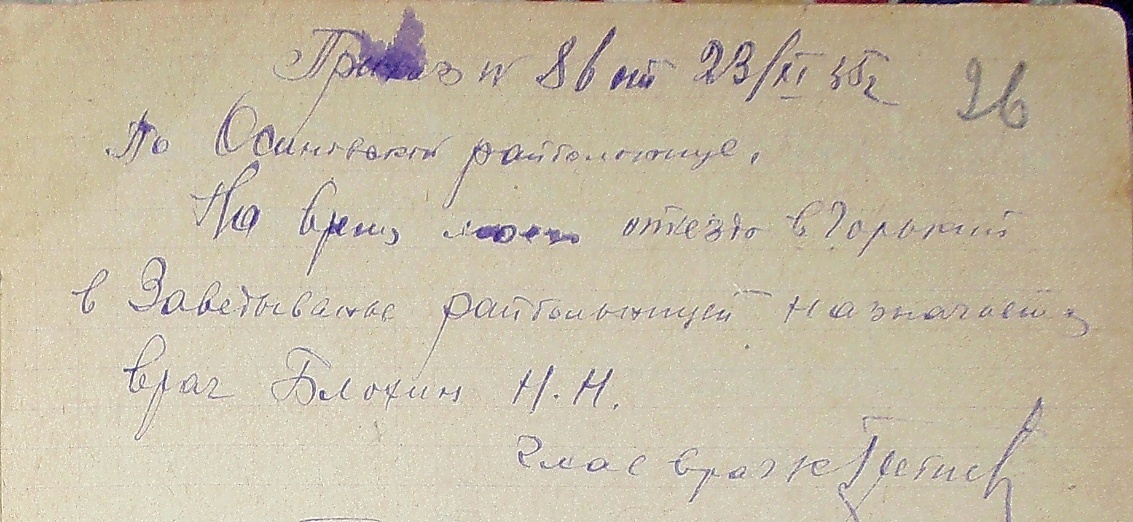 Приказ N 86 от 23/XI 35г
26
По Осиновской райбольнице.
На время моего отъезда в Горький
в Заведыванье райбольницей назначается
врач Блохин Н.Н.
Глав врач